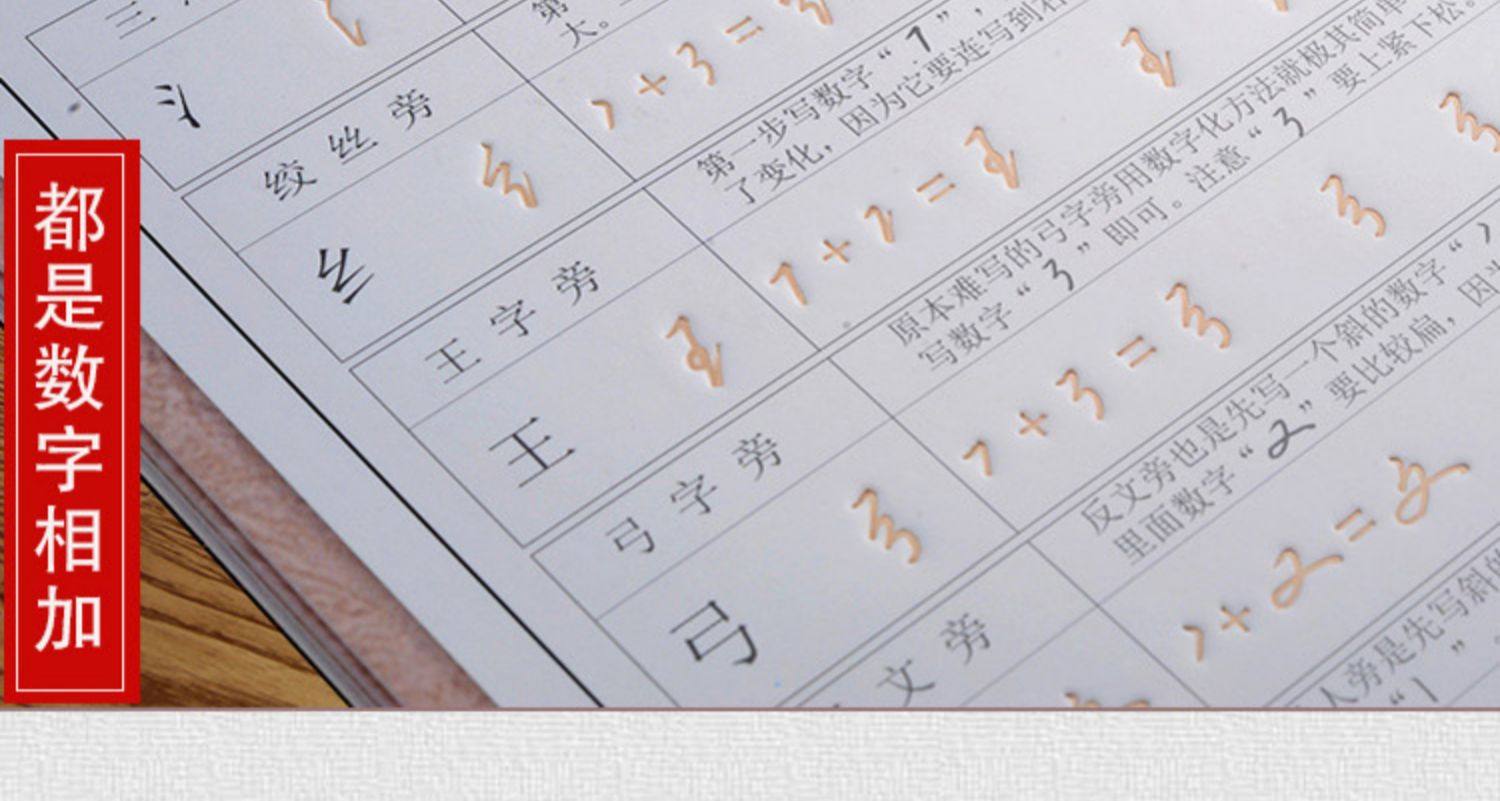 都是数字相加
三
氵
第
大。
绞丝旁
纟
+ 3 =
王字旁
王
第一步写数字“1”，
了变化，因为它要连写到右
1 + 2 =
弓字旁
弓
原本难写的弓字旁用数字化方法就极其简单
写数字“3”即可。注意“3”要上紧下松。
7 + 3 =
文旁
反文旁也是先写一个斜的数字“
里面数字“2”要比较扁，因
+ 2 =
人旁是先写斜的
“1”